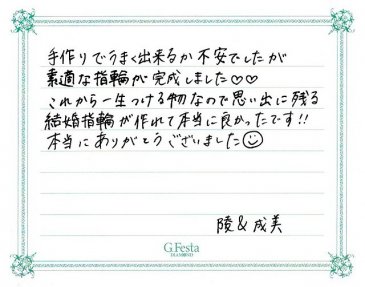 手作りでうまく出来るか不安でしたが
素適な指輪が完成しました♡♡
これから一生つける物なので思い出に残る
結婚指輪が作れて本当に良かったです!!
本当にありがとうございました☺
陵&成美
G.Festa
DIAMOND